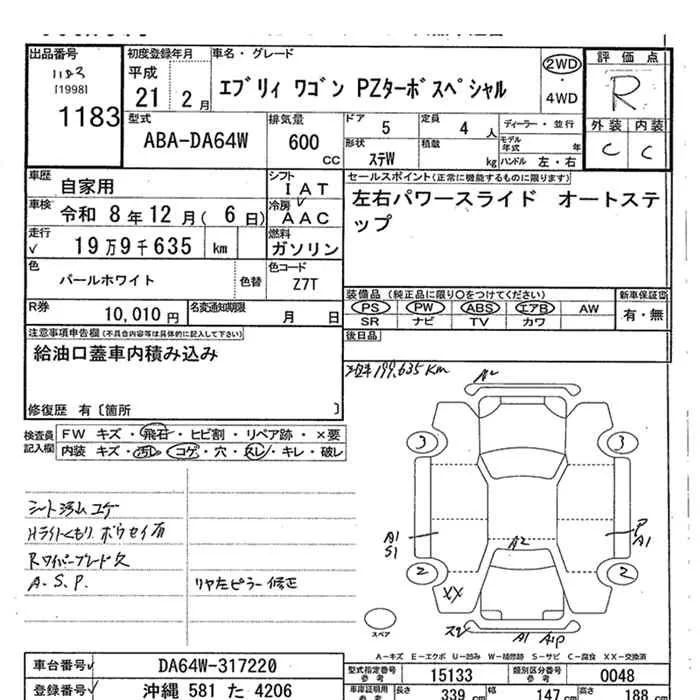 出品番号
1183
[1998]
1183
初度登録年月
平成
21 2月
車名・グレード
エブリィ ワゴン PZターボスペシャル
2WD
・
4WD
評価点
R
外装 内装
C C
型式
ABA-DA64W
排気量
600
CC
ドア 5
定員 4人
形状 ステW
積載 kg
ディーラー・並行
モデル年式 年
ハンドル 左・右
車歴 自家用
シフト
IAT
セールスポイント(正常に機能するものに限ります)
左右パワースライド オートステ
ップ
車検 令和 8年12月( 6日)
冷房
AAC
走行 √ 19万9千635 km
燃料
ガソリン
色 パールホワイト 色替
色コード
Z7T
装備品(純正品に限り○をつけてください)
新車保証書
PS PW ABS エアB AW
SR ナビ TV カワ
有・無
R券 10,010円
名変通知期限
月 日
後日品
注意事項申告欄(不具合内容等は具体的に記入して下さい)
給油口蓋車内積み込み
修復歴 有〔箇所 〕
検査員
記入欄
FW キズ・飛石・ヒビ割・リペア跡・×要
内装 キズ・汚レ・コゲ・穴・スレ・キレ・破レ
シート汚ム コゲ
Hライトくもり ボウセイ有
Rワイパーブレード欠
A.S.P.
リヤ左ピラー修正
199,635Km
A2
3 3
A1
S1
A2
P
A1
2 2
XX
A1
スペア
A-キズ E-エクボ U-凹み W-補修跡 S-サビ C-腐食 XX-交換済
車台番号√ DA64W-317220
登録番号√ 沖縄 581 た 4206
型式指定番号
参考
15133
類別区分番号
参考
0048
車庫証明用
参考
長さ 339 cm
幅 147 cm
高さ 188 cm